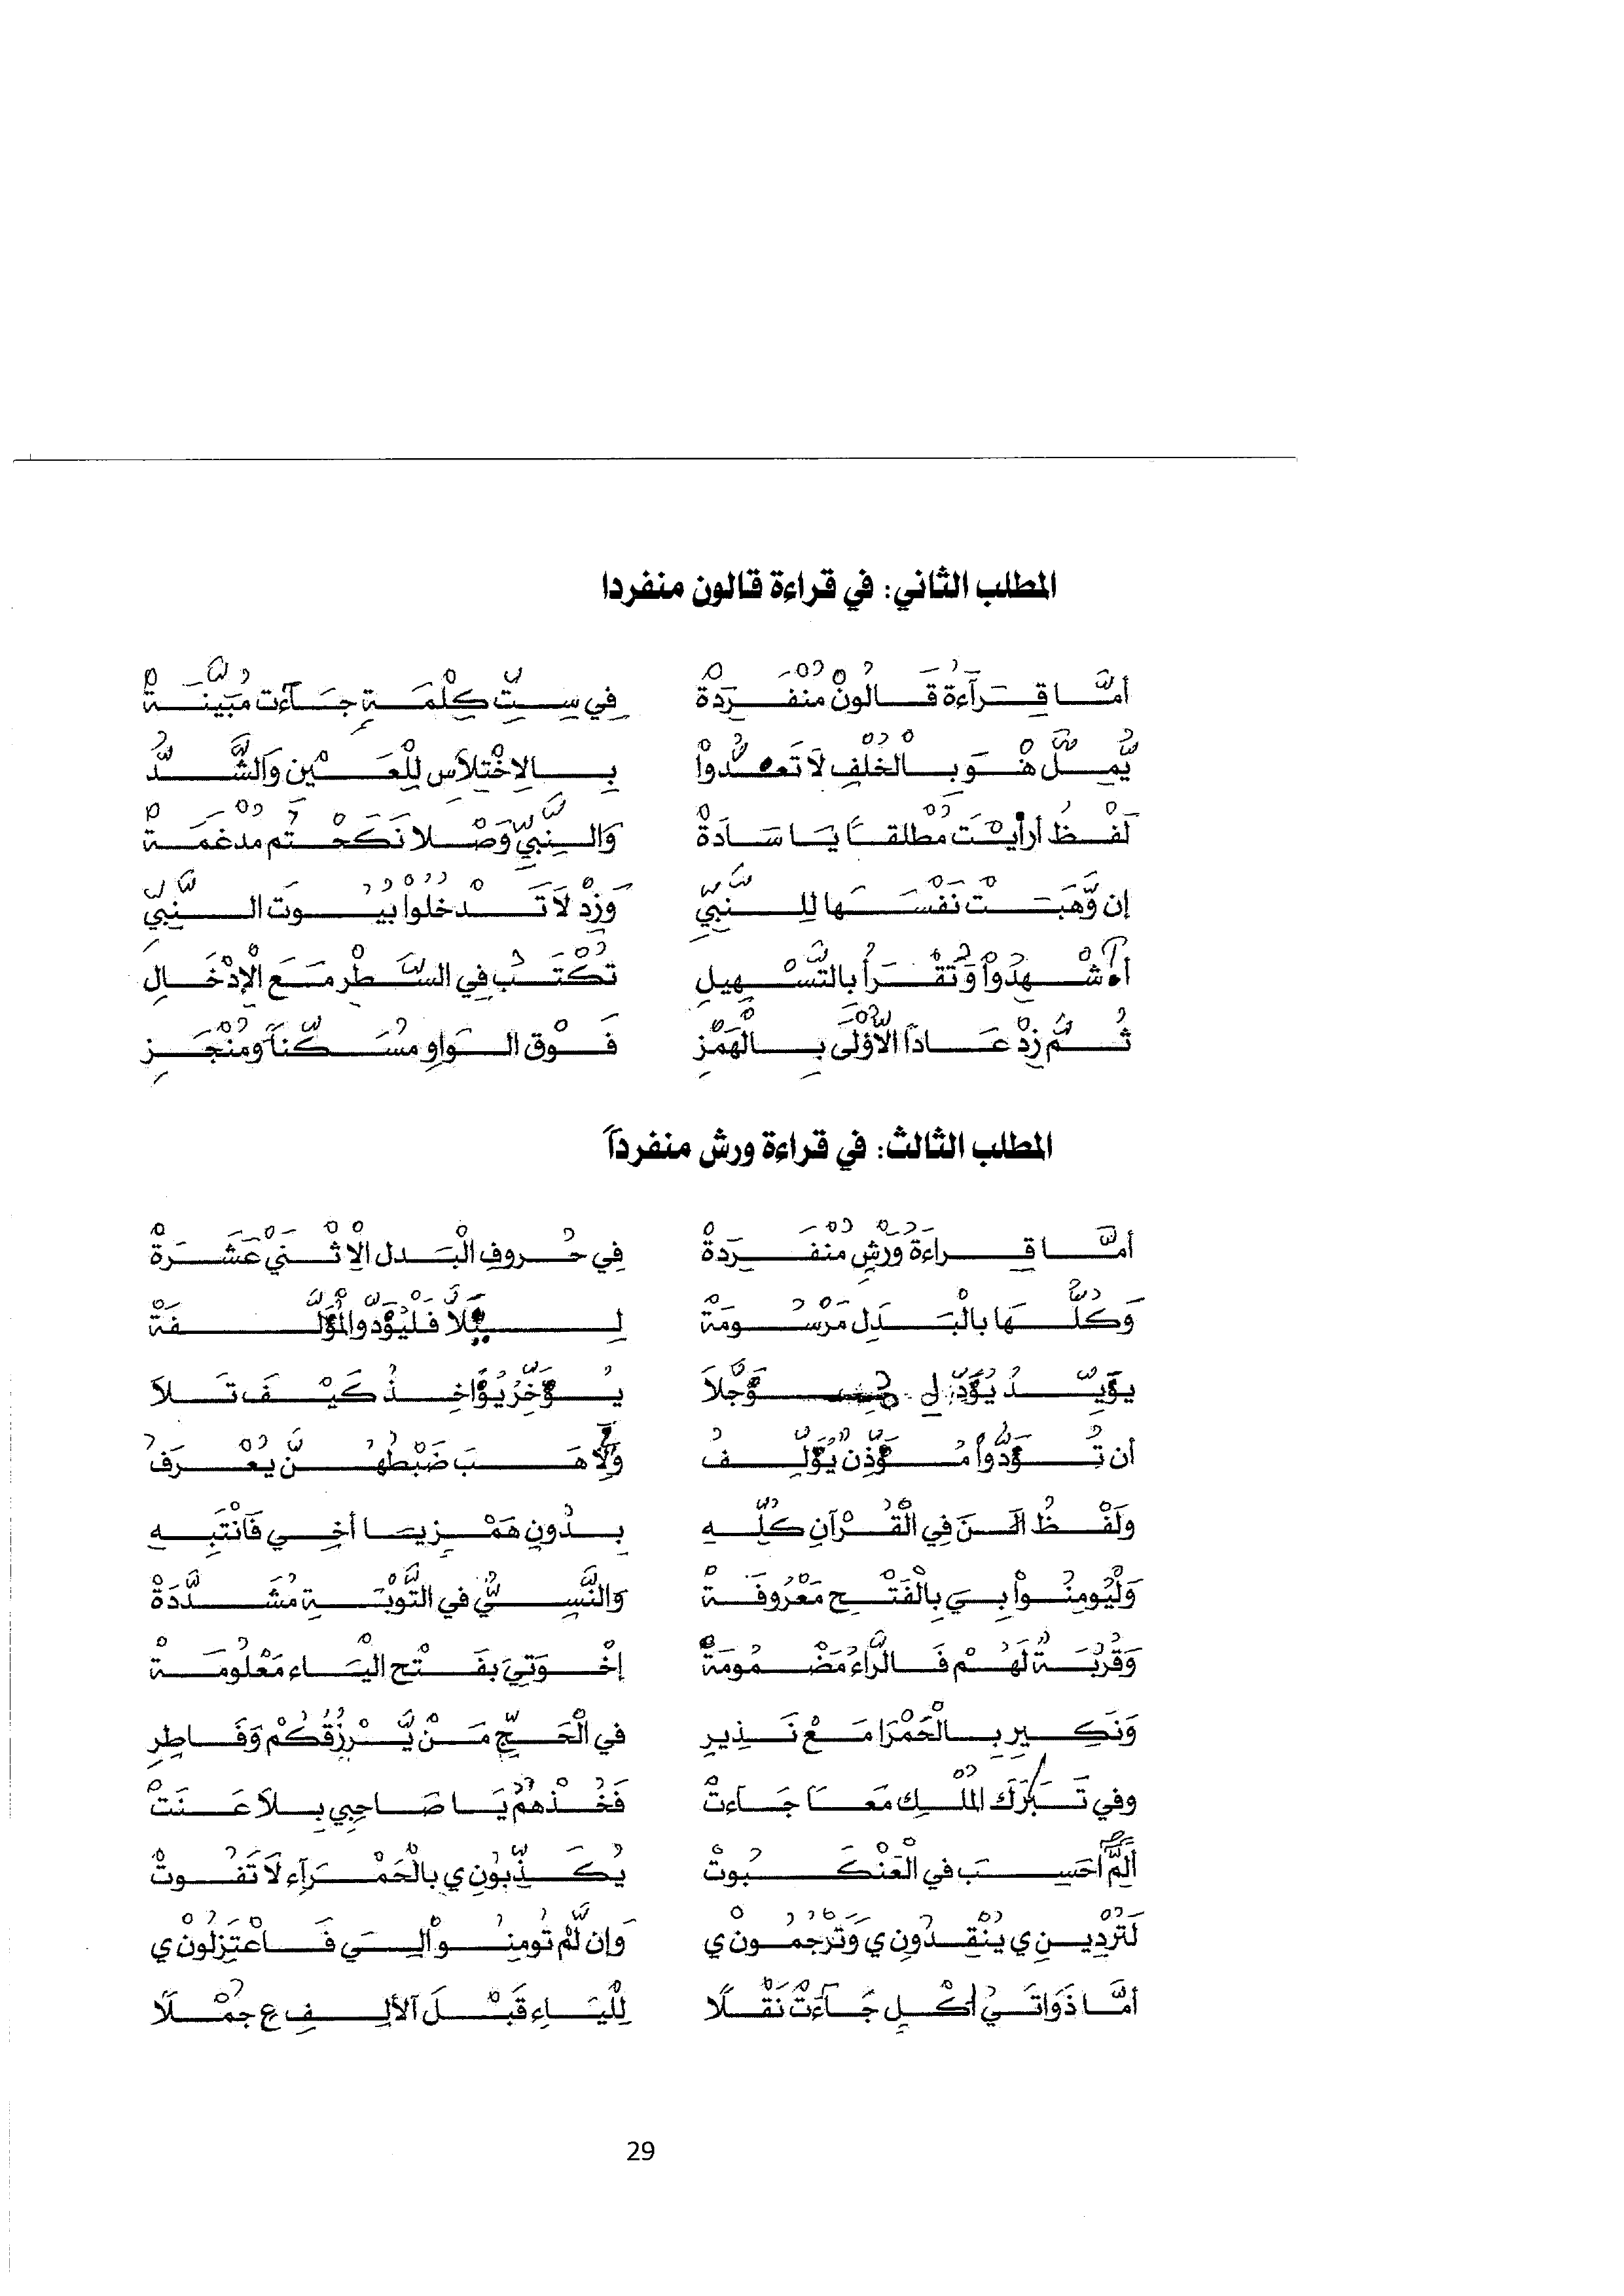 المطلب الثاني: في قراءة قالون منفردا
أمَّا قِرَآءة قَالُونْ منفَرِدَةْ في سِتِّ كِلْمَةٍ جَآءَت مُبَيَّنَةْ
يُّمِلَّ هْوَ بِالْخُلْفِ لاَ تَعْدُّواْ بِالاِخْتِلاَسِ لِلْعَيْنِ وَالشَّدُّ
لَفْظُ أرأيْتَ مُطْلقاً يَا سَادَةْ وَالنَّبِيِّ وَصْلا نَكَحْتُم مدغَمَةْ
إن وَّهَبَتْ نَفْسَهَا لِلنَّبِيِّ وَزِدْ لاَ تَدْخُلُوا بُيُوتَ النَّبِيِّ
أَ•شْهِدُواْ وَتُقْرَأُ بالتَّسْهِيلِ تُكْتَبُ في السَّطْرِ مَعَ الْإِدْخَالِ
ثُمَّ زِدْ عَاداً الاُؤْلَى بِالْهَمْزِ فَوْقَ الْوَاوِ مُسَكَّناً وَمُنْجَزِ
المطلب الثالث: في قراءة ورش منفرداً
أمَّا قِراءَةُ وَرْشٍ مُنْفَرِدَةْ فِي حُروفِ الْبَدل الاِثْنَيْ عَشَرَةْ
وَكُلُّهَا بالْبَدَلِ مَرْسُومَةْ لِيَلاَّ فَلْيُؤَدِّ والْمُؤَلَّفَةْ
يؤَيِّدُ يُؤَدِّ ل وَجَّلاَ يُؤَخِّرُ يُؤَاخِذُ كَيْفَ تَلاَ
أن تُؤَدُّواْ مُؤَذِّن يُؤَلِّفُ وَلِأَهَبَ ضَبْطُهُنَّ يُعْرَفُ
ولَفْظُ الَـنَ فِي الْقُرْآنِ كُلِّهِ بِدُونِ هَمْزٍ يَا أخِي فَانْتَبِهِ
وَلْيُومِنُواْ بِيَ بِالْفَتْحِ مَعْرُوفَةْ وَالنَّسِيُّ فِي التَّوْبَةِ مُشَدَّدَةْ
وَقُرُبَةٌ لَهُمْ فَالرَّاءُ مَضْمُومَةْ إخْوَتِيَ بِفَتْحِ الْيَاءِ مَعْلُومَةْ
وَنَكِيرِ بِالْحَمْرَا مَعْ نَذِيرِ في الْحَجِّ مَنْ يَّرْزُقُكُمْ وَفَاطِرِ
وفي تَبَـٰرَكَ الْمُلْكِ مَعاً جَاءتْ فَخُذْهُمُ يَا صَاحِبِي بِلاَ عَنَتْ
الَمِّ أحَسِبَ في الْعَنْكَبُوتْ يُكَذِّبُونِ ي بالْحَمْرَآءِ لاَ تَفُوتْ
لَتُرْدِينِ ي يُنْقِذُونِ ي وَتَرْجُمُونِ ي وَإن لَّمْ تُومِنُواْ لِيَ فَاعْتَزِلُونِ ي
أمَّا ذَوَاتَيُ أُكُلٍ جَآءَتْ نَقْلًا لِلْيَاءِ قَبْلَ الأَلِفِ ع جُمْلًا
29